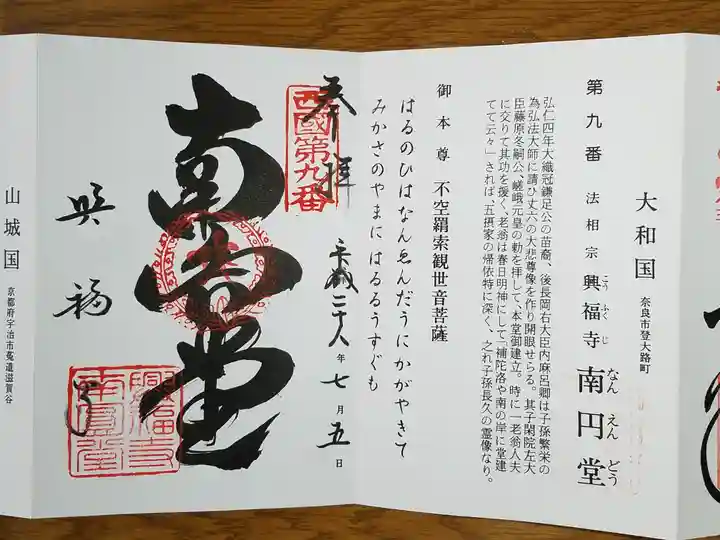 大和国 奈良市登大路町
第九番 法相宗 興福寺 南円堂
こうふくじ なんえんどう
弘仁四年大織冠鎌足公の苗裔、後長岡右大臣内麻呂卿は子孫繁栄の
為弘法大師に請ひ丈六の大悲尊像を作り開眼せらる。其子閑院左大
臣藤原冬嗣公、嵯峨元皇の勅を拝して、本堂御建立。時に一老翁人夫
に交りて其功を援く、老翁は春日明神にして「補陀洛や南の岸に堂建
てて云々」されば「五摂家の帰依特に深く、之れ子孫長久の霊像なり。
御本尊 不空羂索観世音菩薩
はるのひはなんゑんだうにかがやきて
みかさのやまにはるるうすぐも
奉拝
西國第九番
平成二十八年七月五日
南円堂
興福寺
興福寺南円堂
山城国 京都府宇治市菟道滋賀谷